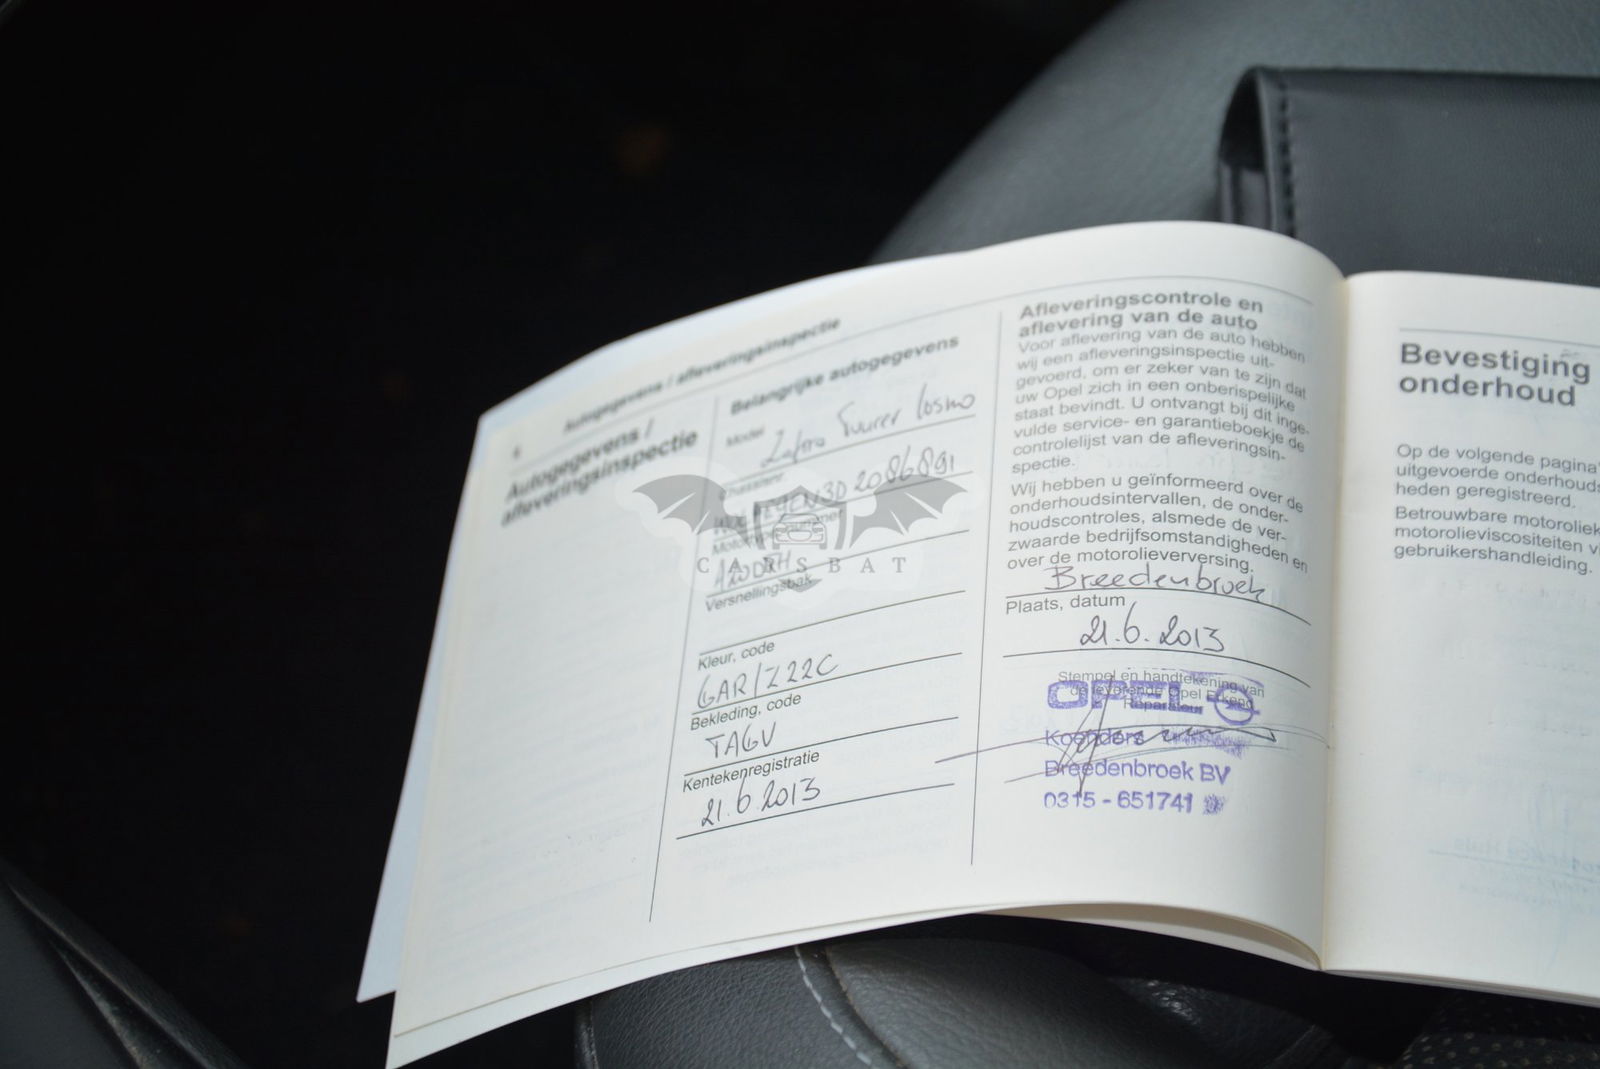 6
Autogegevens / afleveringsinspectie
Autogegevens /
afleveringsinspectie
Belangrijke autogegevens
Model
Zafira Tourer Cosmo
Chassisnr.
2086891
Motortype/nummer
Versnellingsbak
Kleur, code
GAR/Z22C
Bekleding, code
TAGV
Kentekenregistratie
21.6.2013
Afleveringscontrole en
aflevering van de auto
Voor aflevering van de auto hebben
wij een afleveringsinspectie uit-
gevoerd, om er zeker van te zijn dat
uw Opel zich in een onberispelijke
staat bevindt. U ontvangt bij dit inge-
vulde service- en garantieboekje de
controlelijst van de afleveringsin-
spectie.
Wij hebben u geïnformeerd over de
onderhoudsintervallen, de onder-
houdscontroles, alsmede de ver-
zwaarde bedrijfsomstandigheden en
over de motorolieverversing.
Breedenbroek
Plaats, datum
21.6.2013
Stempel en handtekening van
de leverende Opel Erkend
Reparateur
OPEL
Koenders
Breedenbroek BV
0315 - 651741
Bevestiging
onderhoud
Op de volgende pagina'
uitgevoerde onderhouds
heden geregistreerd.
Betrouwbare motoroliek
motorolieviscositeiten vi
gebruikershandleiding.
CARSBAT